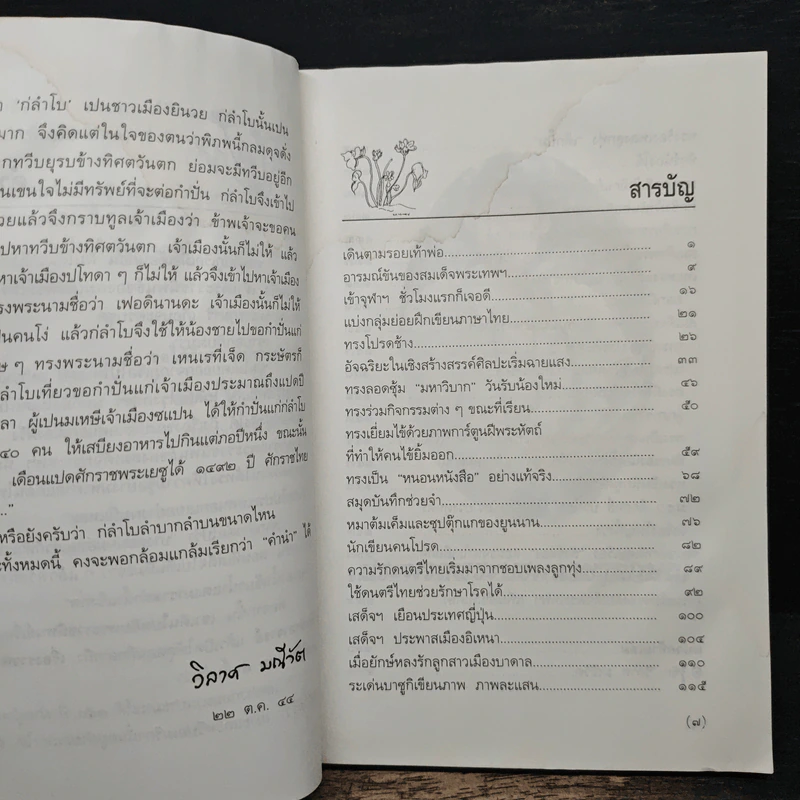 'ก่ลำโบ' เปนชาวเมืองยินวย ก่ลำโบนั้นเปน
มาก จึงคิดแต่ในใจของตนว่าพิภพนี้กลมดุจดั่ง
กทวีบยุรบข้างทิศตวันตก ย่อมจะมีทวีบอยู่อีก
นเขนใจไม่มีทรัพย์ที่จะต่อกำปั่น ก่ลำโบจึงเข้าไป
วยแล้วจึงกราบทูลเจ้าเมืองว่า ข้าพเจ้าจะขอคน
ปหาทวีบข้างทิศตวันตก เจ้าเมืองนั้นก็ไม่ให้ แล้ว
หาเจ้าเมืองปโทดา ๆ ก็ไม่ให้ แล้วจึงเข้าไปหาเจ้าเมือง
รงพระนามชื่อว่า เฟอดินานดะ เจ้าเมืองนั้นก็ไม่ให้
ป็นคนโง่ แล้วก่ลำโบจึงใช้ให้น้องชายไปขอกำปั่นแก่
ษ ๆ ทรงพระนามชื่อว่า เหนเรที่เจ็ด กระษัตรก็
ลำโบเที่ยวขอกำปั่นแก่เจ้าเมืองประมาณถึงแปดปี
ลา ผู้เปนมเหษีเจ้าเมืองซแปน ได้ให้กำปั่นแก่ก่ลำโบ
๔๐ คน ให้เสบียงอาหารไปกินแต่ภอปีหนึ่ง ขณะนั้น
เดือนแปดศักราชพระเยซูได้ ๑๔๙๒ ปี ศักราชไทย
..."
หรือยังครับว่า ก่ลำโบลำบากลำบนขนาดไหน
ะทั้งหมดนี้ คงจะพอกล้อมแกล้มเรียกว่า "คำนำ" ได้
วิลาศ มณีวัต
๒๒ ต.ค. ๔๔
สารบัญ
เดินตามรอยเท้าพ่อ ๑
อารมณ์ขันของสมเด็จพระเทพฯ ๙
เข้าจุฬาฯ ชั่วโมงแรกก็เจอดี ๑๖
แบ่งกลุ่มย่อยฝึกเขียนภาษาไทย ๒๑
ทรงโปรดช้าง ๒๖
อัจฉริยะในเชิงสร้างสรรค์ศิลปะเริ่มฉายแสง ๓๓
ทรงลอดซุ้ม "มหาวิบาก" วันรับน้องใหม่ ๔๖
ทรงร่วมกิจกรรมต่าง ๆ ขณะที่เรียน ๕๐
ทรงเยี่ยมไข้ด้วยภาพการ์ตูนฝีพระหัตถ์
ที่ทำให้คนไข้ยิ้มออก ๕๙
ทรงเป็น "หนอนหนังสือ" อย่างแท้จริง ๖๘
สมุดบันทึกช่วยจำ ๗๒
หมาต้มเค็มและซุปตุ๊กแกของยูนนาน ๗๖
นักเขียนคนโปรด ๘๒
ความรักดนตรีไทยเริ่มมาจากชอบเพลงลูกทุ่ง ๘๙
ใช้ดนตรีไทยช่วยรักษาโรคได้ ๙๒
เสด็จฯ เยือนประเทศญี่ปุ่น ๑๐๐
เสด็จฯ ประพาสเมืองอิเหนา ๑๐๔
เมื่อยักษ์หลงรักลูกสาวเมืองบาดาล ๑๑๐
ระเด่นบาซูกิเขียนภาพ ภาพละแสน ๑๑๕
(๗)